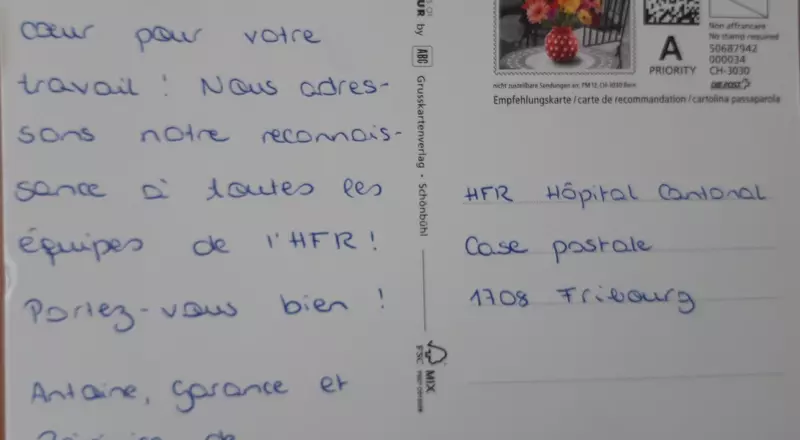 cœur pour votre
travail ! Nous adres-
sons notre reconnais-
sance à toutes les
équipes de l'HFR !
Portez-vous bien !
Antoine, Garance et
de
UR by ABC Grusskartenverlag • Schönbühl
MIX
A
PRIORITY
Non affranchire
No stamp required
50687942
000034
CH-3030
DIE POST
nicht zustellbare Sendungen an: PM 12, CH-3030 Bern
Empfehlungskarte / carte de recommandation / cartolina passaparola
HFR Hôpital Cantonal
Case postale
1708 Fribourg